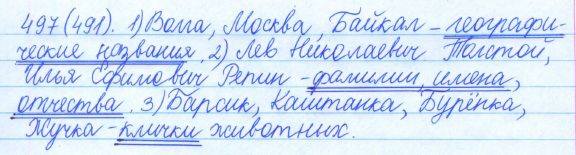 497(491). 1) Волга, Москва, Байкал – географи-
ческие названия. 2) Лев Николаевич Толстой,
Илья Ефимович Репин – фамилии, имена,
отчества. 3) Барсик, Каштанка, Бурёнка,
Жучка – клички животных.